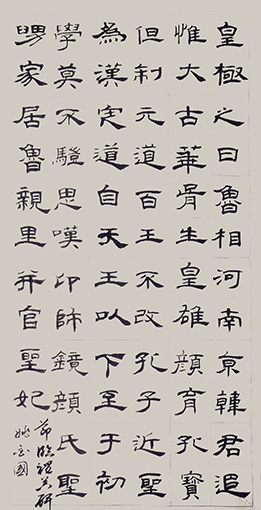 皇極之日魯相河南京韓君追
惟大古華胥生皇雄顏育孔寶
但制元道百王不改孔子近聖
為漢定道自天王以下至于初
學莫不驩思嘆卬師鏡顏氏聖
舅家居魯親里并官聖妃
節臨禮器碑